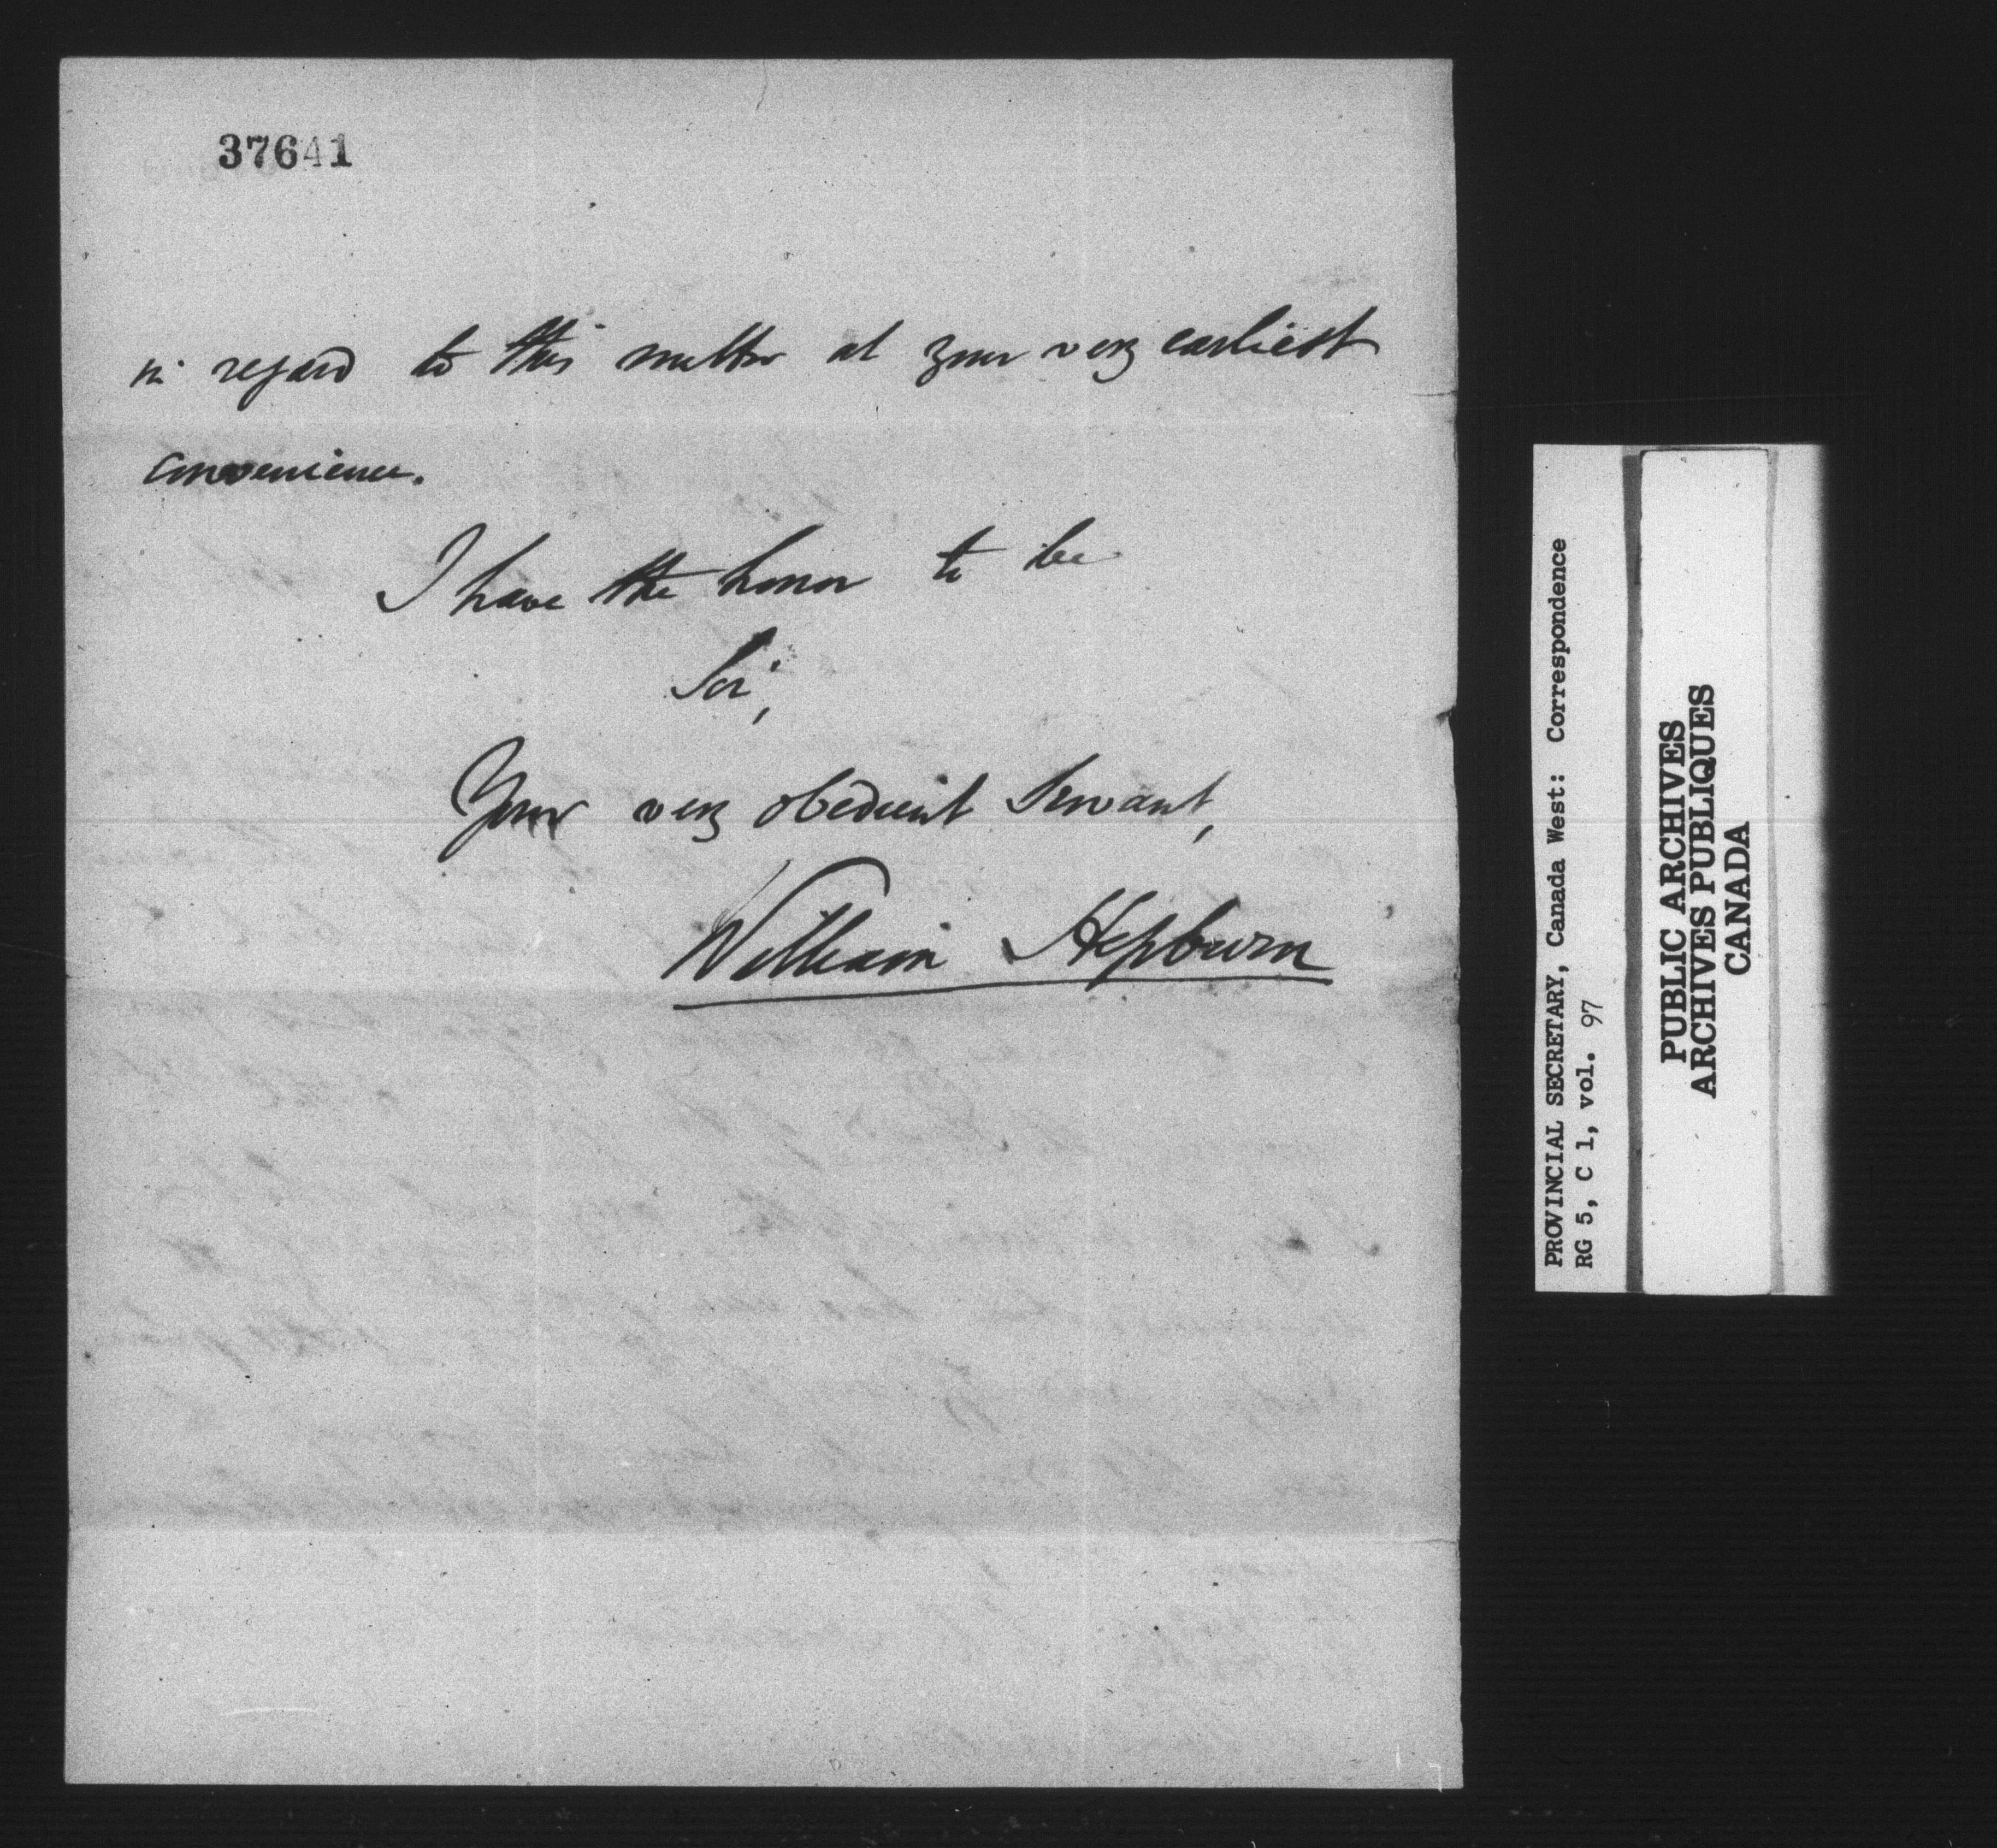 37641
in regard to this matter at your very earliest
convenience.
I have the honor to be
Sir,
Your very obedient Servant,
William Hepburn
PROVINCIAL SECRETARY, Canada West: Correspondence
RG 5, C 1, vol. 97
PUBLIC ARCHIVES
ARCHIVES PUBLIQUES
CANADA